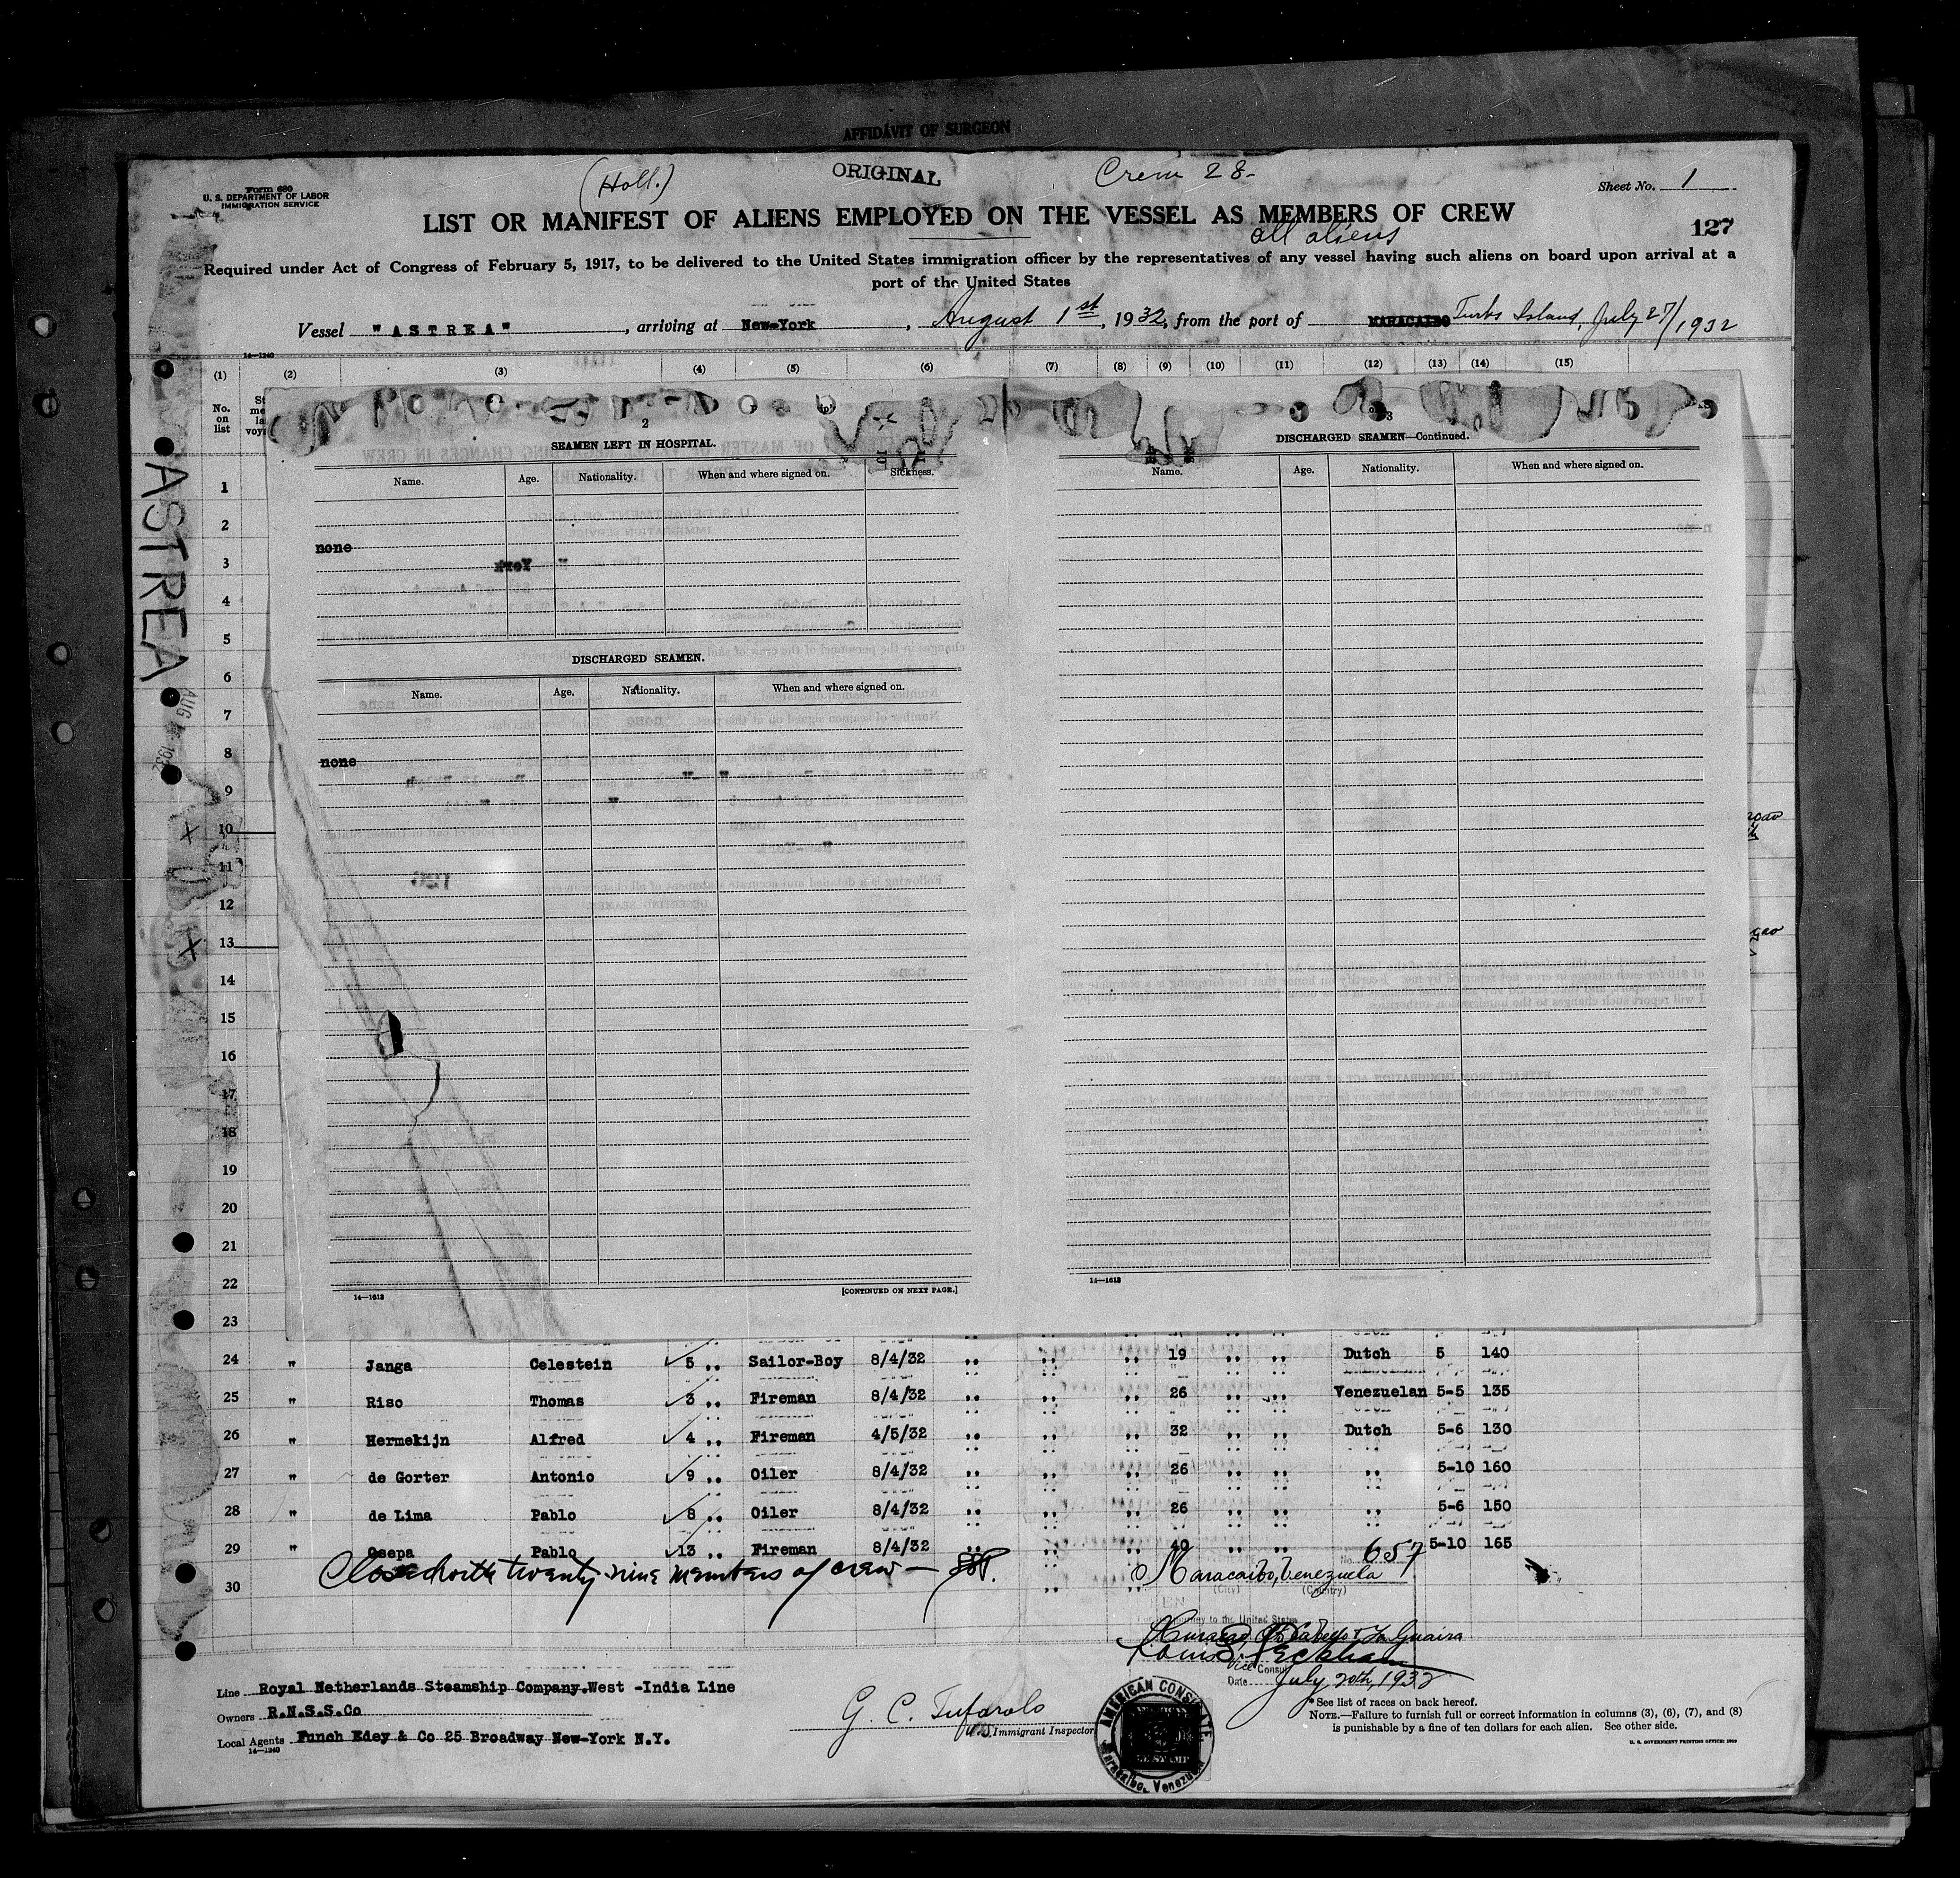 AFFIDAVIT OF SURGEON
Form 680
U. S. DEPARTMENT OF LABOR
IMMIGRATION SERVICE
(Holl.)
ORIGINAL
Crew 28-
Sheet No. 1
LIST OR MANIFEST OF ALIENS EMPLOYED ON THE VESSEL AS MEMBERS OF CREW
all aliens
127
Required under Act of Congress of February 5, 1917, to be delivered to the United States immigration officer by the representatives of any vessel having such aliens on board upon arrival at a
port of the United States
Vessel "ASTREA", arriving at New-York, August 1st, 1932, from the port of MARACAIBO Turks Island, July 27/1932
14—1240
(1) (2) (3) (4) (5) (6) (7) (8) (9) (10) (11) (12) (13) (14) (15)
No. on list
ASTREA
AUG 1932
2
SEAMEN LEFT IN HOSPITAL.
Name. Age. Nationality. When and where signed on. Sickness.
none
DISCHARGED SEAMEN.
Name. Age. Nationality. When and where signed on.
none
14—1613
[CONTINUED ON NEXT PAGE.]
3
DISCHARGED SEAMEN—Continued.
Name. Age. Nationality. When and where signed on.
14—1613
1
2
3
4
5
6
7
8
9
10
11
12
13
14
15
16
17
18
19
20
21
22
23
24 " Janga Celestein 5 ,, Sailor-Boy 8/4/32 ,, ,, ,, 19 ,, ,, Dutch 5 140
25 " Riso Thomas 3 ,, Fireman 8/4/32 ,, ,, ,, 26 ,, ,, Venezuelan 5-5 135
26 " Hermekijn Alfred 4 ,, Fireman 4/5/32 ,, ,, ,, 32 ,, ,, Dutch 5-6 130
27 " de Gorter Antonio 9 ,, Oiler 8/4/32 ,, ,, ,, 26 ,, ,, ,, 5-10 160
28 " de Lima Pablo 8 ,, Oiler 8/4/32 ,, ,, ,, 26 ,, ,, ,, 5-6 150
29 " Osepa Pablo 13 ,, Fireman 8/4/32 ,, ,, ,, 40 ,, ,, ,, 5-10 165
30
Closed with twenty-nine members of crew —
No. 657
Maracaibo, Venezuela
(City) (Country)
journey to the United States
Curacao, Pto Cabello & La Guaira
Louis Peckham
Vice Consul
Date July 20th, 1932
Line Royal Netherlands Steamship Company.West -India Line
Owners R.N.S.S.Co
Local Agents Funch Edey & Co 25 Broadway New-York N.Y.
14—1240
G. C. Tufarolo
U.S. Immigrant Inspector
AMERICAN CONSULATE
Maracaibo, Venezuela
* See list of races on back hereof.
NOTE.—Failure to furnish full or correct information in columns (3), (6), (7), and (8)
is punishable by a fine of ten dollars for each alien. See other side.
U. S. GOVERNMENT PRINTING OFFICE: 1929